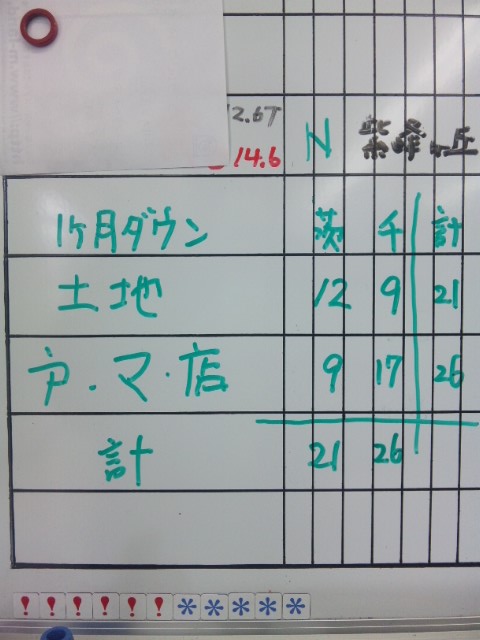 2.6T
14.6 N 紫峰ヶ丘
1ヶ月ダウン 茨 千 計
土地 12 9 21
ア・マ・店 9 17 26
計 21 26
! ! ! ! ! ! * * * * *